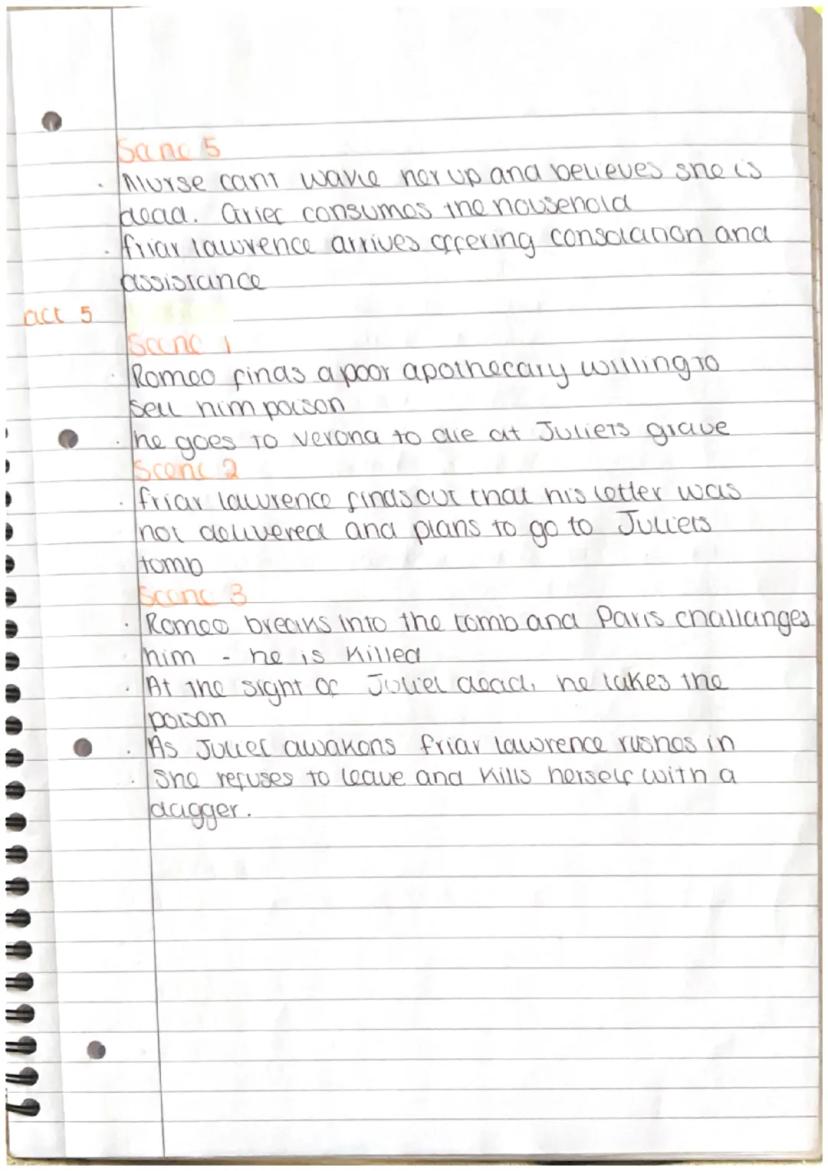 Scene 5
· Nurse cant wake her up and believes she is
dead. Grief consumes the household
· friar lawrence arrives offering consolation and
assistance
act 5
Scene 1
· Romeo finds a poor apothecary willing to
sell him poison
· he goes to verona to die at Juliets grave
Scene 2
· friar lawrence finds out that his letter was
not delivered and plans to go to Juliets
tomb
Scene 3
· Romeo breaks into the tomb and Paris challanges
him - he is killed
· At the sight of Juliet dead, he takes the
poison
· As Juliet awakens friar lawrence rushes in
· She refuses to leave and kills herself with a
dagger.